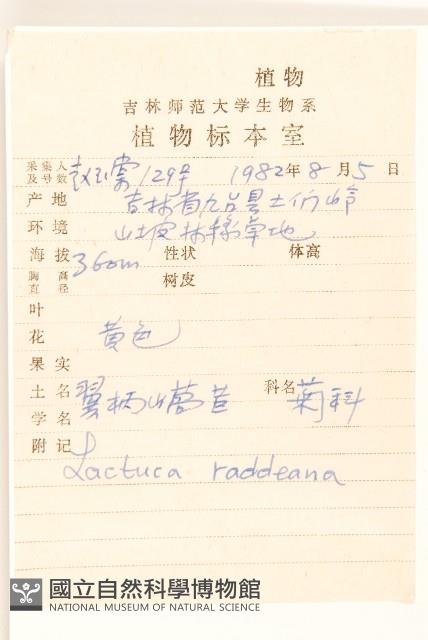 植物
吉林师范大学生物系
植物标本室
采集人及号数 赵玉棠 129号 1982年8月5日
产地 吉林省九台县土们岭
环境 山坡林缘草地
海拔 360m 性状 体高
胸高直径 树皮
叶
花 黄色
果实
土名 翼柄山莴苣 科名 菊科
学名
附记
Lactuca raddeana
國立自然科學博物館
NATIONAL MUSEUM OF NATURAL SCIENCE